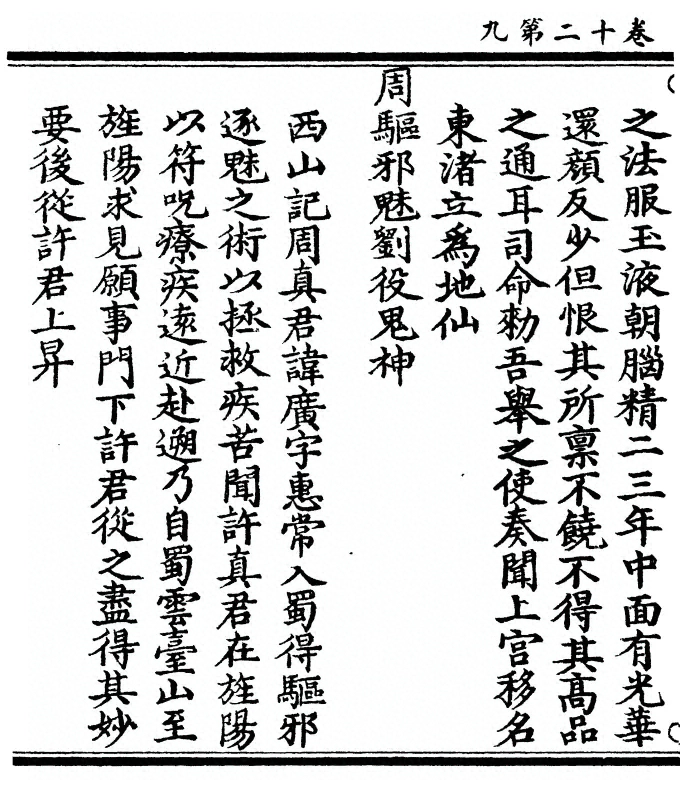 卷十二第九
之法服玉液朝腦精二三年中面有光華
還顔反少但恨其所禀不饒不得其高品
之通耳司命勑吾舉之使奏聞上宫移名
東渚立為地仙
周驅邪魅劉役鬼神
西山記周真君諱廣字惠常入蜀得驅邪
逐魅之術以拯救疾苦聞許真君在旌陽
以符呪療疾逺近赴遡乃自蜀雲臺山至
旌陽求見願事門下許君從之盡得其妙
要後從許君上昇